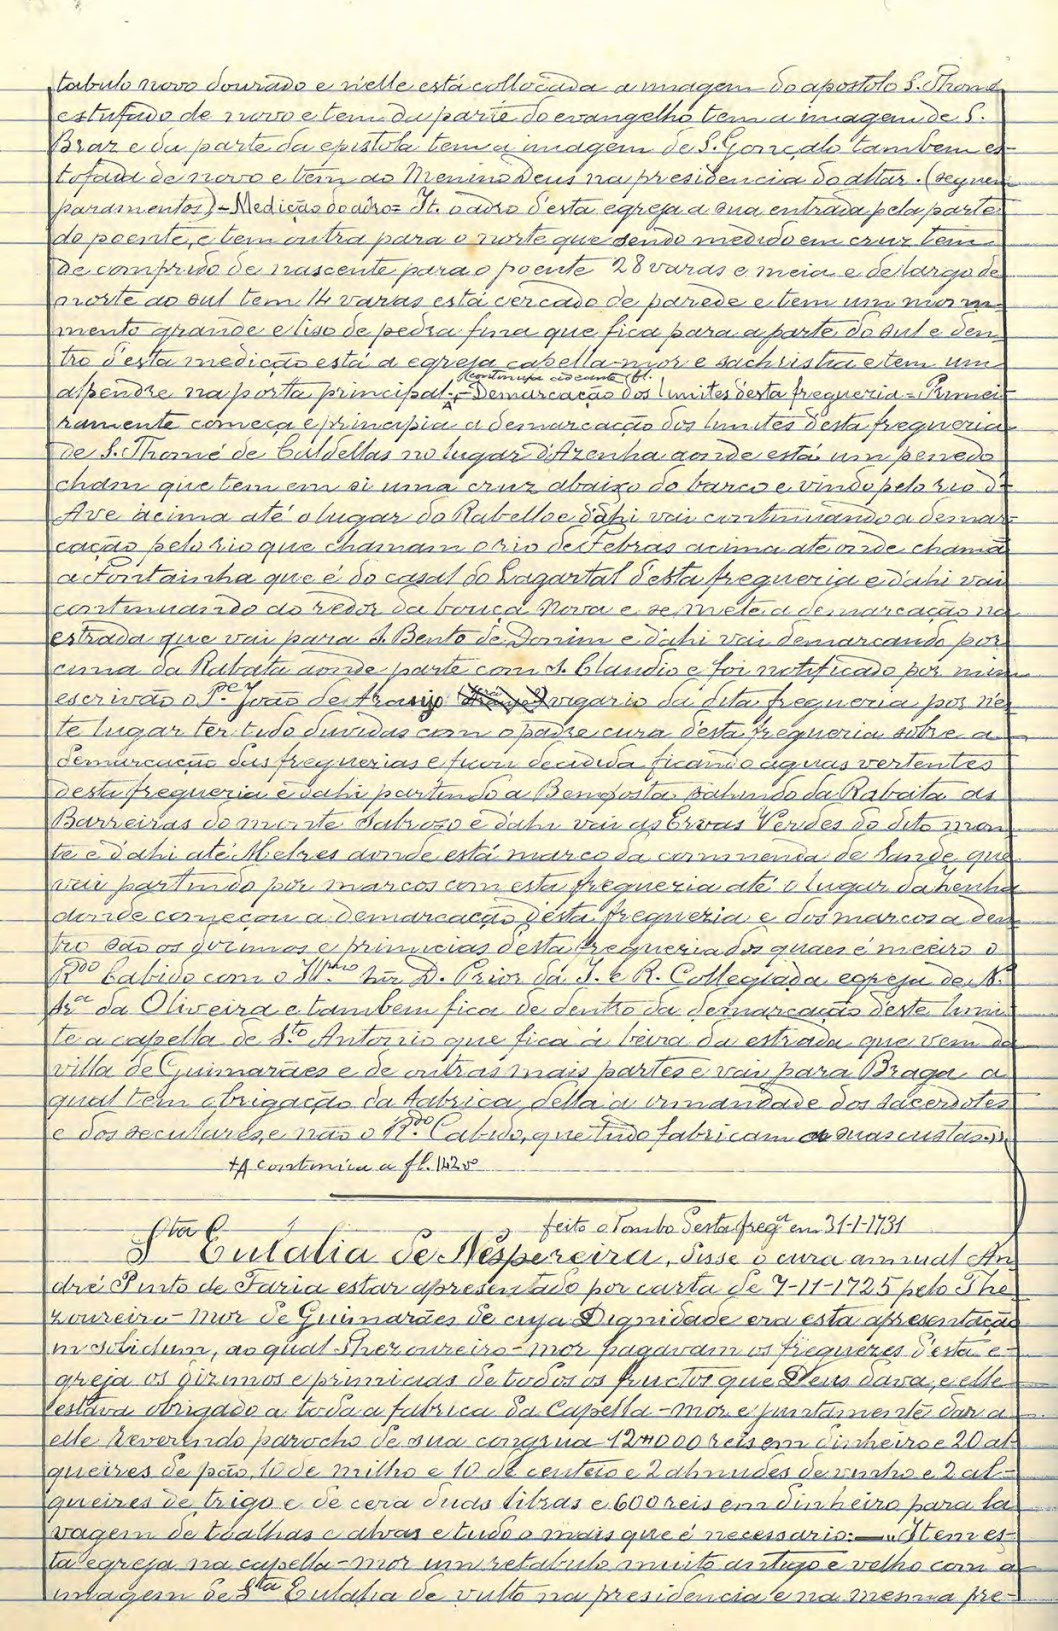 tabulo novo dourado e n'elle está collocada a imagem do apostolo S. Thomé
estufado de novo e tem da parte do evangelho tem a imagem de S.
Braz e da parte da epistola tem a imagem de S. Gonçalo tambem es-
tofada de novo e tem ao Menino Deus na presidencia do altar. (seguem
paramentos) - Medição do adro = It. o adro d'esta egreja a sua entrada pela parte
do poente, e tem outra para o norte que sendo medido em cruz tem
de comprido de nascente para o poente 28 varas e meia e de largo de
norte ao sul tem 14 varas está cercado de parede e tem um
mento grande e liso de pedra fina que fica para a parte do sul e den-
tro d'esta medição está a egreja capella-mor e sachristia e tem um
(continua adeante fl.
alpendre na porta principal. A - Demarcação dos limites d'esta freguezia = Primei-
ramente começa e principia a demarcação dos limites d'esta freguezia
de S. Thomé de Caldellas no lugar d'Azenha aonde está um penedo
cham que tem em si uma cruz abaixo do barco e vindo pelo rio d'
Ave acima até o lugar do Rabello e d'ahi vai continuando a demar-
cação pelo rio que chamam o rio de Febras acima até onde chamã
a Fontainha que é do casal do Lagartal d'esta freguezia e d'ahi vai
continuando ao redor da bouça Nova e se mete a demarcação na
estrada que vai para S. Bento de Donim e d'ahi vai demarcando por
cima da Rabata aonde parte com S. Claudio e foi notificado por mim
escrivão o P.e João de Araujo vigario da dita freguezia por nes-
te lugar ter tido duvidas com o padre cura d'esta freguezia sobre a
demarcação das freguezias e ficou decidida ficando aguas vertentes
desta freguezia e d'ahi partindo a Bemposta sahindo da Rabaita as
Barreiras do monte Sabrozo e d'ahi vai as Ervas Verdes do dito mon-
te e d'ahi até Melres aonde está marco da commenda de Sande que
vai partindo por marcos com esta freguezia até o lugar da Azenha
donde começou a demarcação d'esta freguezia e dos marcos a den-
tro são os dizimos e primicias desta freguezia dos quaes é meeiro o
R.do Cabido com o Ill.mo Snr. D. Prior da I. e R. Collegiada egreja de N.
Sr.a da Oliveira e tambem fica de dentro da demarcação d'este limi-
te a capella de S.to Antonio que fica á beira da estrada que vem da
villa de Guimarães e de outras mais partes e vai para Braga a
qual tem obrigação da fabrica della a irmandade dos sacerdotes
e dos seculares, e não o R.do Cabido, que tudo fabricam a suas custas.»
+A continúa a fl. 142 v.o
feito o Tombo desta freg.a em 31-1-1731
S.ta Eulalia de Nespereira, disse o cura annual An-
dré Pinto de Faria estar apresentado por carta de 7-11-1725 pelo The-
zoureiro-mor de Guimarães de cuja Dignidade era esta apresentação
in solidum, ao qual Thezoureiro-mor pagavam os freguezes d'esta e-
greja os dizimos e primicias de todos os fructos que Deus dava, e elle
estava obrigado a toda a fabrica da Capella-mor e juntamente dar a
elle reverendo parocho de sua congrua 12#000 reis em dinheiro e 20 al-
queires de pão, 10 de milho e 10 de centeio e 2 almudes de vinho e 2 al-
queires de trigo e de cera duas libras e 600 reis em dinheiro para la-
vagem de toalhas e alvas e tudo o mais que é necessario: — „Item es-
ta egreja na capella-mor um retabulo muito antigo e velho com a
imagem de S.ta Eulalia de vulto na presidencia e na mesma pre-